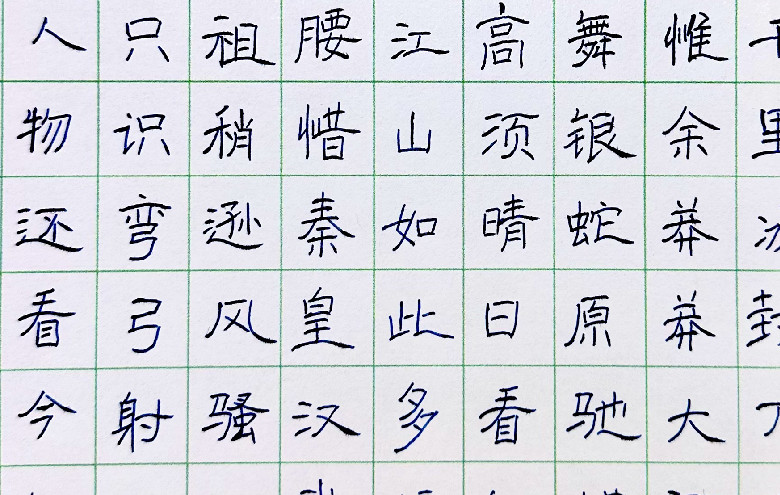 千里冰封
惟余莽莽大
舞银蛇原驰
高须晴日看
江山如此多
腰惜秦皇汉
祖稍逊风骚
只识弯弓射
人物还看今